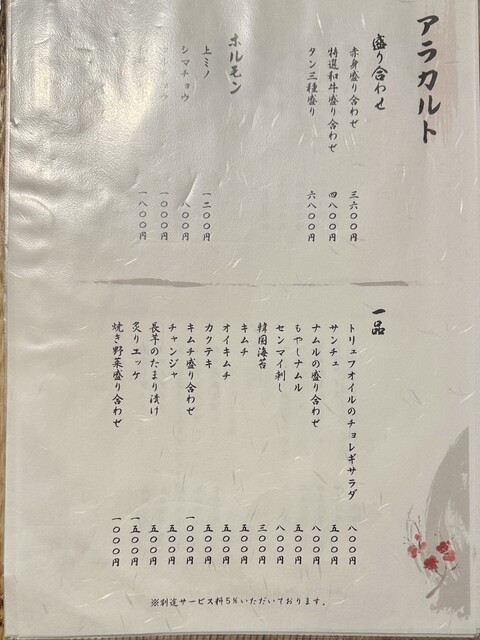 アラカルト
盛り合わせ
赤身盛り合わせ 三六〇〇円
特選和牛盛り合わせ 四八〇〇円
タン三種盛り 六八〇〇円
ホルモン
上ミノ 一二〇〇円
シマチョウ 八〇〇円
一〇〇〇円
一八〇〇円
一品
トリュフオイルのチョレギサラダ 八〇〇円
サンチュ 五〇〇円
ナムルの盛り合わせ 八〇〇円
もやしナムル 五〇〇円
センマイ刺し 八〇〇円
韓国海苔 三〇〇円
キムチ 五〇〇円
オイキムチ 五〇〇円
カクテキ 五〇〇円
キムチ盛り合わせ 一〇〇〇円
チャンジャ 五〇〇円
長芋のたまり漬け 五〇〇円
炙りエッケ 一五〇〇円
焼き野菜盛り合わせ 一〇〇〇円
※別途サービス料5%いただいております。